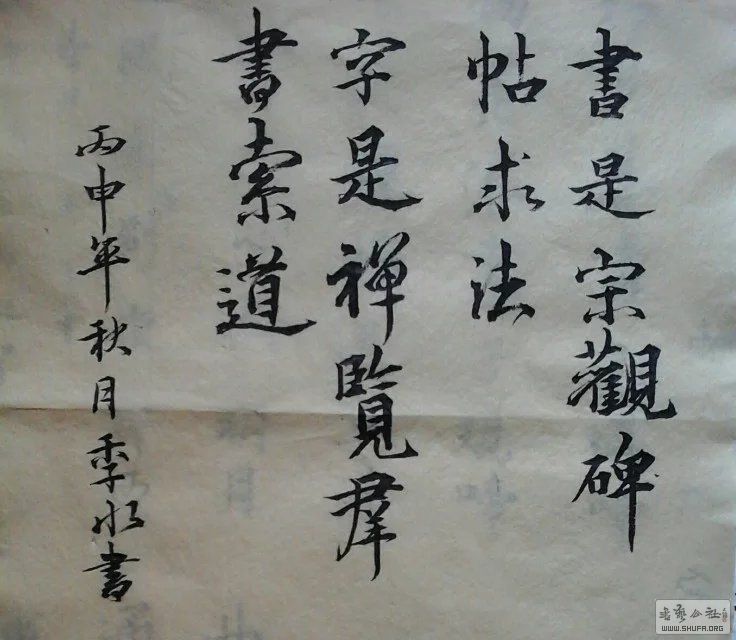 書是宗觀碑
帖求法
字是禪覽群
書索道
丙申年秋月季水書
書藝公社
WWW.SHUFA.ORG